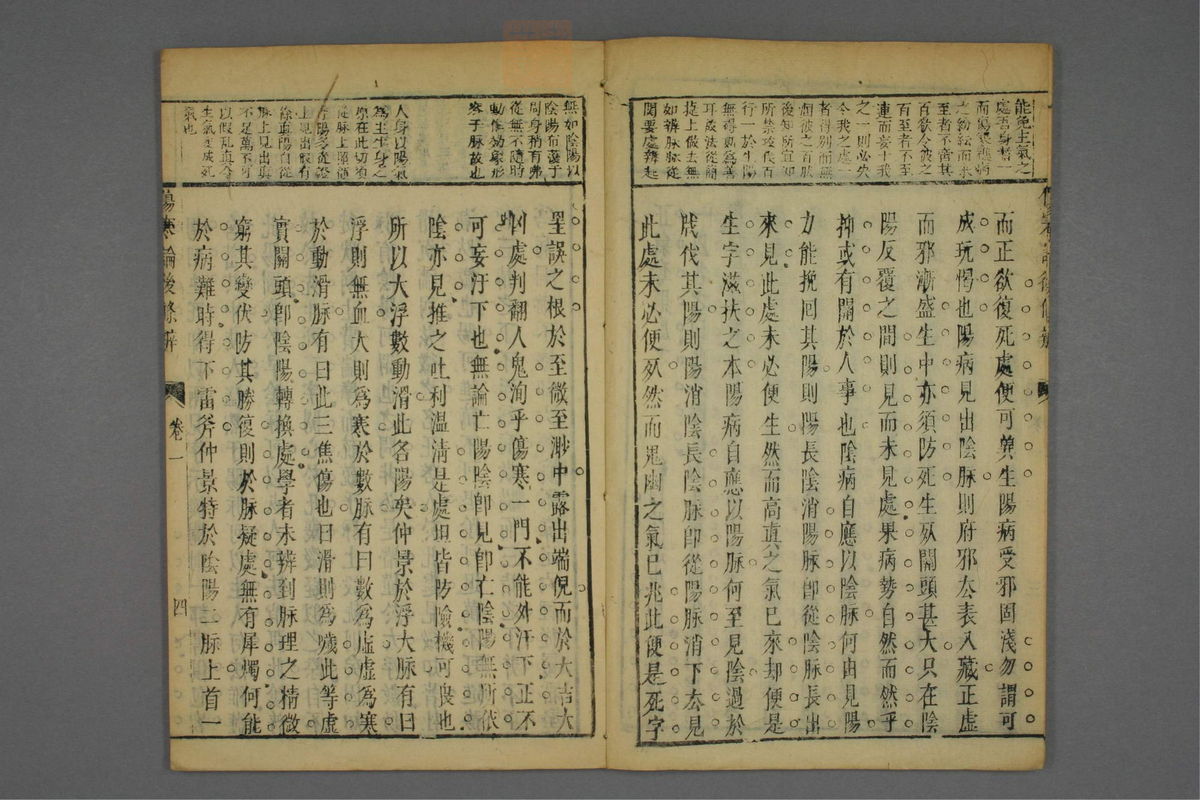 能免主氣之
處吾身者一
而傷寒雜病
之紛紜而求
至者不啻其
百欲令彼之
百至者不至
連而妄十我
之一則必央
令我之處一
者得別而無
淆彼之百脉
後知所宜知
所禁攻佚百
行一於生陽
無碍斯為善
耳故法從簡
捷上做去無
如辨脉脉從
関要處辨起
而正欲復死處便可兾生陽病受邪固淺勿謂可
成玩愒也陽病見出陰脉則府邪厺表入藏正虛
而邪漸盛生中亦須防死生死關頭甚大只在陰
陽反覆之間則見而未見處果病勢自然而然乎
抑或有關於人事也陰病自應以陰脉何由見陽
力能挽囘其陽則陽長陰消陽脉卽從陰脉長出
來見此處未必便生然而高眞之氣巳來却便是
生字滋扶之本陽病自應以陽脉何至見陰過於
戕伐其陽則陽消陰長陰脉卽從陽脉消下厺見
此處未必便死然而鬼幽之氣巳兆此便是死字
無如陰陽以
陰陽布護于
周身稍有弗
從無不隨時
動作効象形
容于脉故也
人身以陽氣
為主生身之
原在此切須
從脉上照顧
浮陽多從證
上見出假有
餘眞陽自從
脉上見出眞
不足萬不可
以假乱眞令
生氣变成死
氣也
傷寒論後條辨 卷一 四
罣誤之根於至微至渺中露出端倪而於大吉大
凶處判翻人鬼洵乎傷寒一門不能外汗下正不
可妄汗下也無論亡陽陰卽見卽亡陰陽無所依
陰亦見推之吐利溫淸是處坦皆防險機可畏也
所以大浮數動滑此各陽矣仲景於浮大脉有曰
浮則無血大則爲寒於數脉有曰數爲虛虛爲寒
於動滑脉有曰此三焦傷也曰滑則爲噦此等虛
實關頭卽陰陽轉換處學者未辨到脉理之精微
窮其變伏防其勝復則於脉疑處無有犀燭何能
於病難時得下雷斧仲景特於陰陽二脉上首一